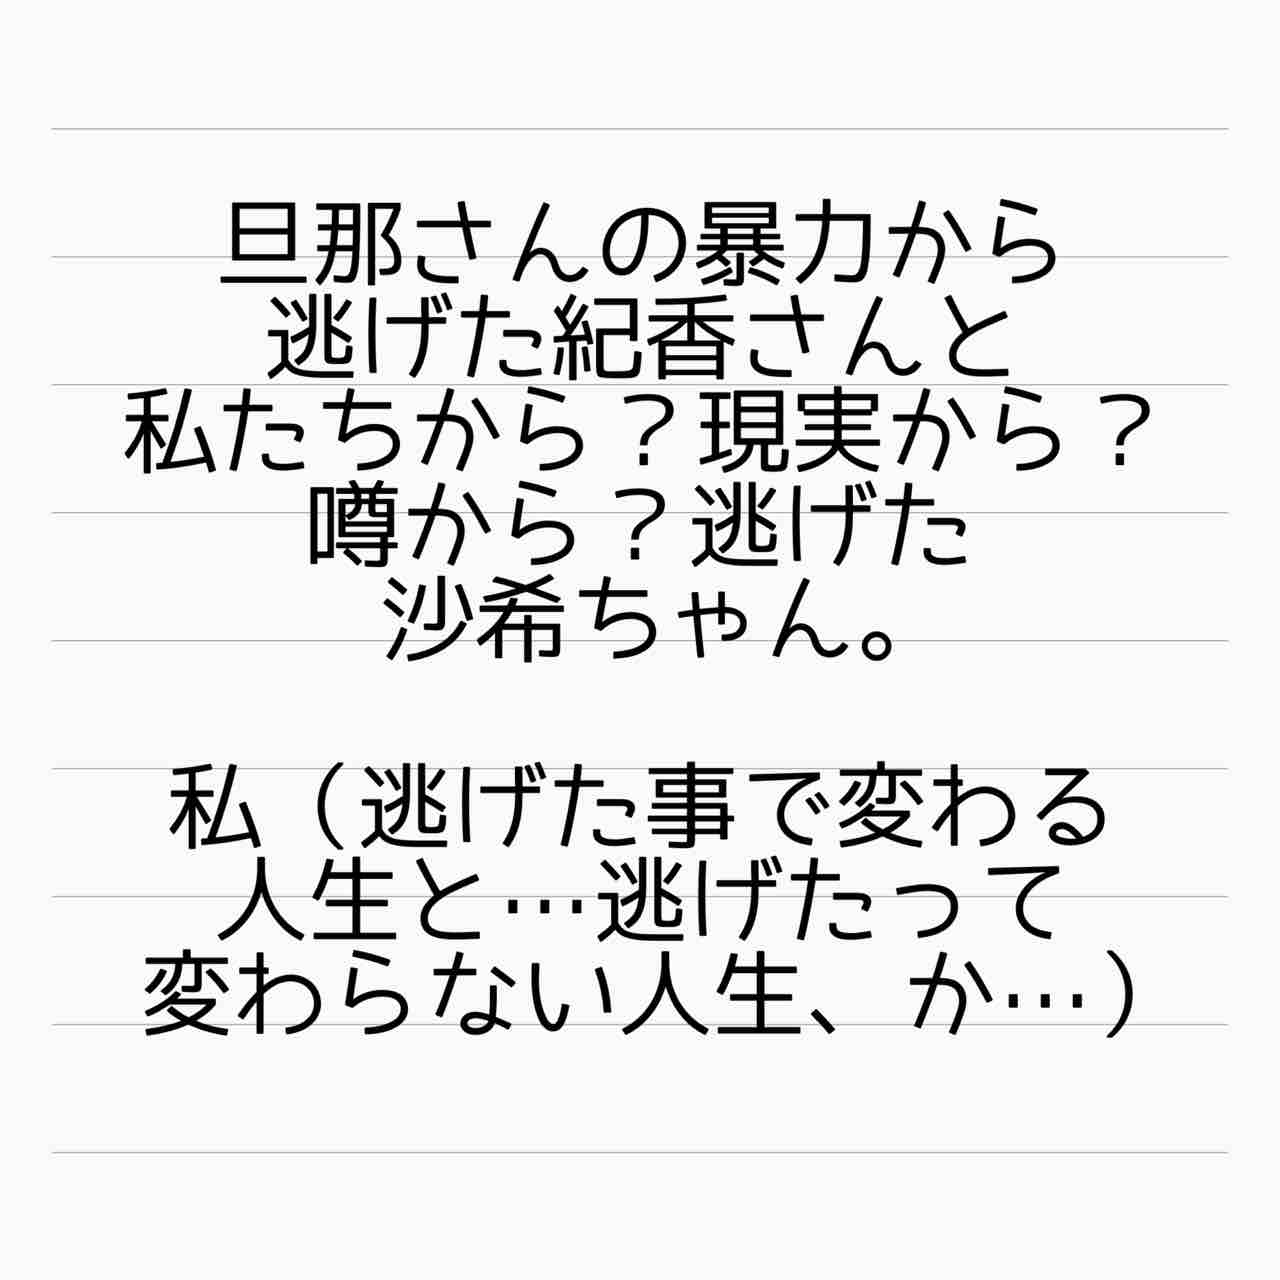 旦那さんの暴力から
逃げた紀香さんと
私たちから？現実から？
噂から？逃げた
沙希ちゃん。
私（逃げた事で変わる
人生と…逃げたって
変わらない人生、か…）